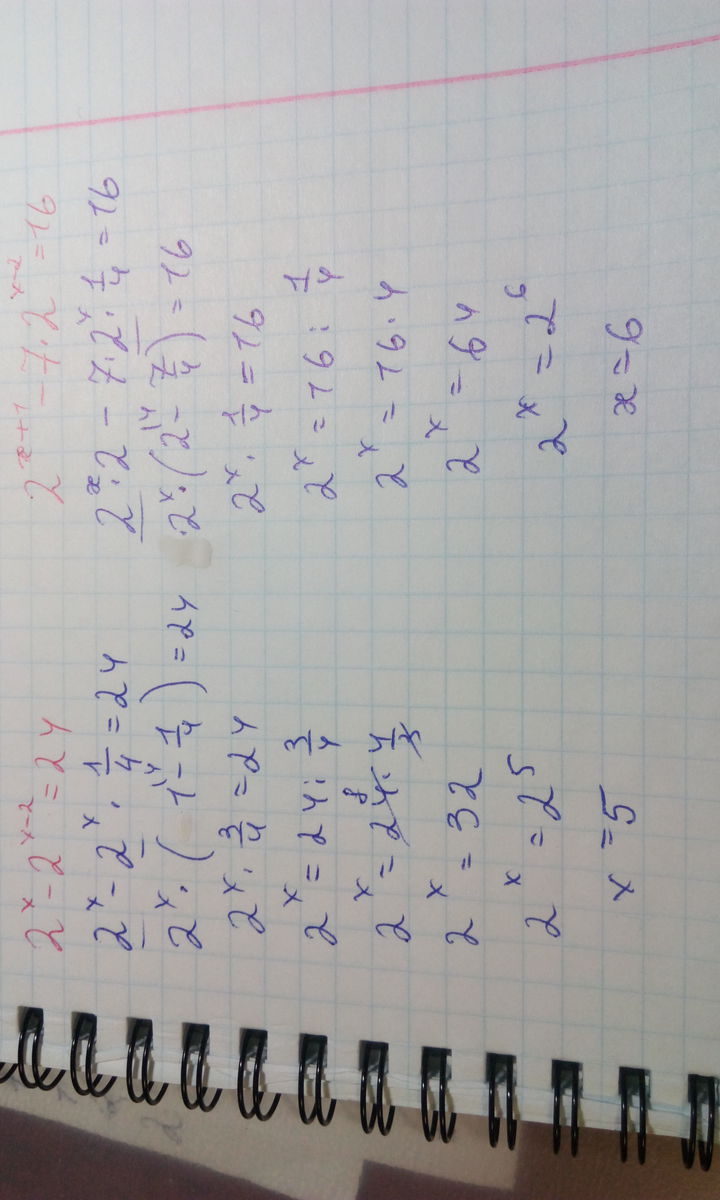 2^x - 2^(x-2) = 24
2^x - 2^x · 1/4 = 24
2^x · (1 - 1/4) = 24
2^x · 3/4 = 24
2^x = 24 : 3/4
2^x = 24 · 4/3
2^x = 32
2^x = 2^5
x = 5
2^(x+1) - 7 · 2^(x-2) = 16
2^x · 2 - 7 · 2^x · 1/4 = 16
2^x · (2 - 7/4) = 16
2^x · 1/4 = 16
2^x = 16 : 1/4
2^x = 16 · 4
2^x = 64
2^x = 2^6
x = 6